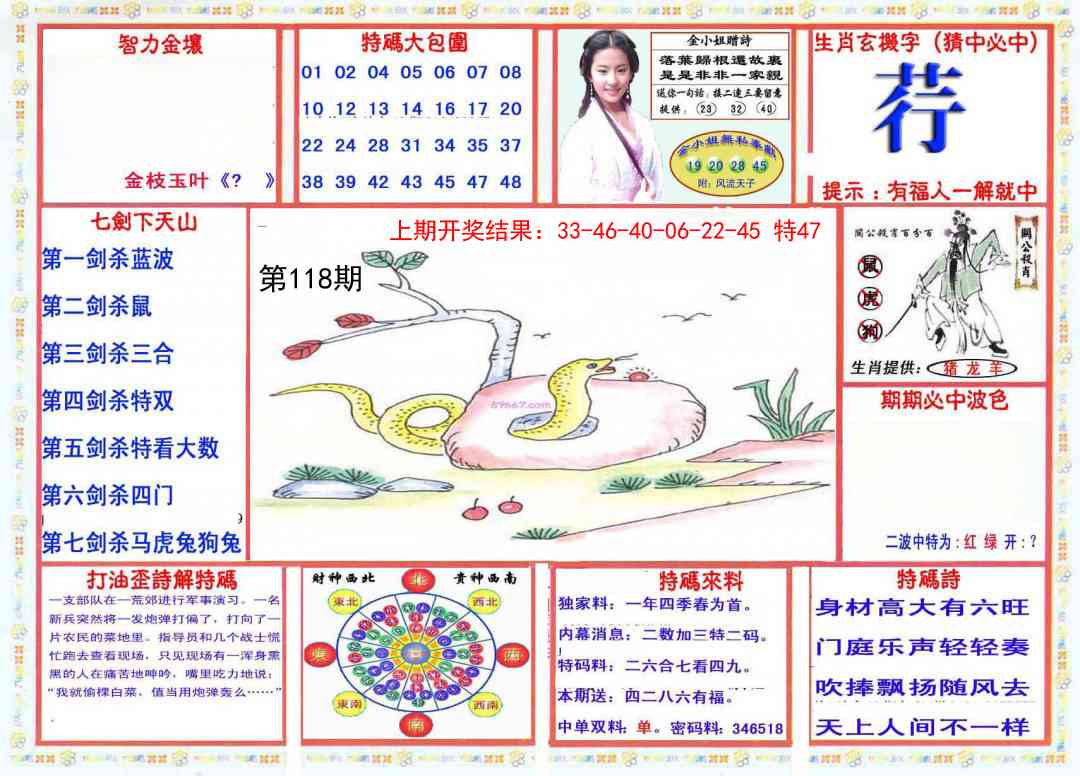 智力金壤
金枝玉叶《? 》
特碼大包圍
01 02 04 05 06 07 08
10 12 13 14 16 17 20
22 24 28 31 34 35 37
38 39 42 43 45 47 48
金小姐贈詩
落葉歸根還故裏
是是非非一家親
送你一句話：接二連三要留意
提供：23 32 40
金小姐無私奉獻
19 20 28 45
附：风流天子
生肖玄機字（猜中必中）
荇
提示：有福人一解就中
七劍下天山
第一剑杀蓝波
第二剑杀鼠
第三剑杀三合
第四剑杀特双
第五剑杀特看大数
第六剑杀四门
第七剑杀马虎兔狗兔
上期开奖结果：33-46-40-06-22-45 特47
第118期
89667.com
關公殺肖百分百
關公殺肖
鼠
虎
狗
生肖提供：猪 龙 羊
期期必中波色
二波中特为：红 绿 开：?
打油歪詩解特碼
一支部队在一荒郊进行军事演习。一名
新兵突然将一发炮弹打偏了，打向了一
片农民的菜地里。指导员和几个战士慌
忙跑去查看现场，只见现场有一浑身熏
黑的人在痛苦地呻吟，嘴里吃力地说：
“我就偷棵白菜，值当用炮弹轰么……”
財神西北
貴神西南
北
東北
西北
東
西
東南
西南
南
特碼來料
独家料：一年四季春为首。
内幕消息：二数加三特二码。
特码料：二六合七看四九。
本期送：四二八六有福。
中单双料：单。密码料：346518
特碼詩
身材高大有六旺
门庭乐声轻轻奏
吹捧飘扬随风去
天上人间不一样